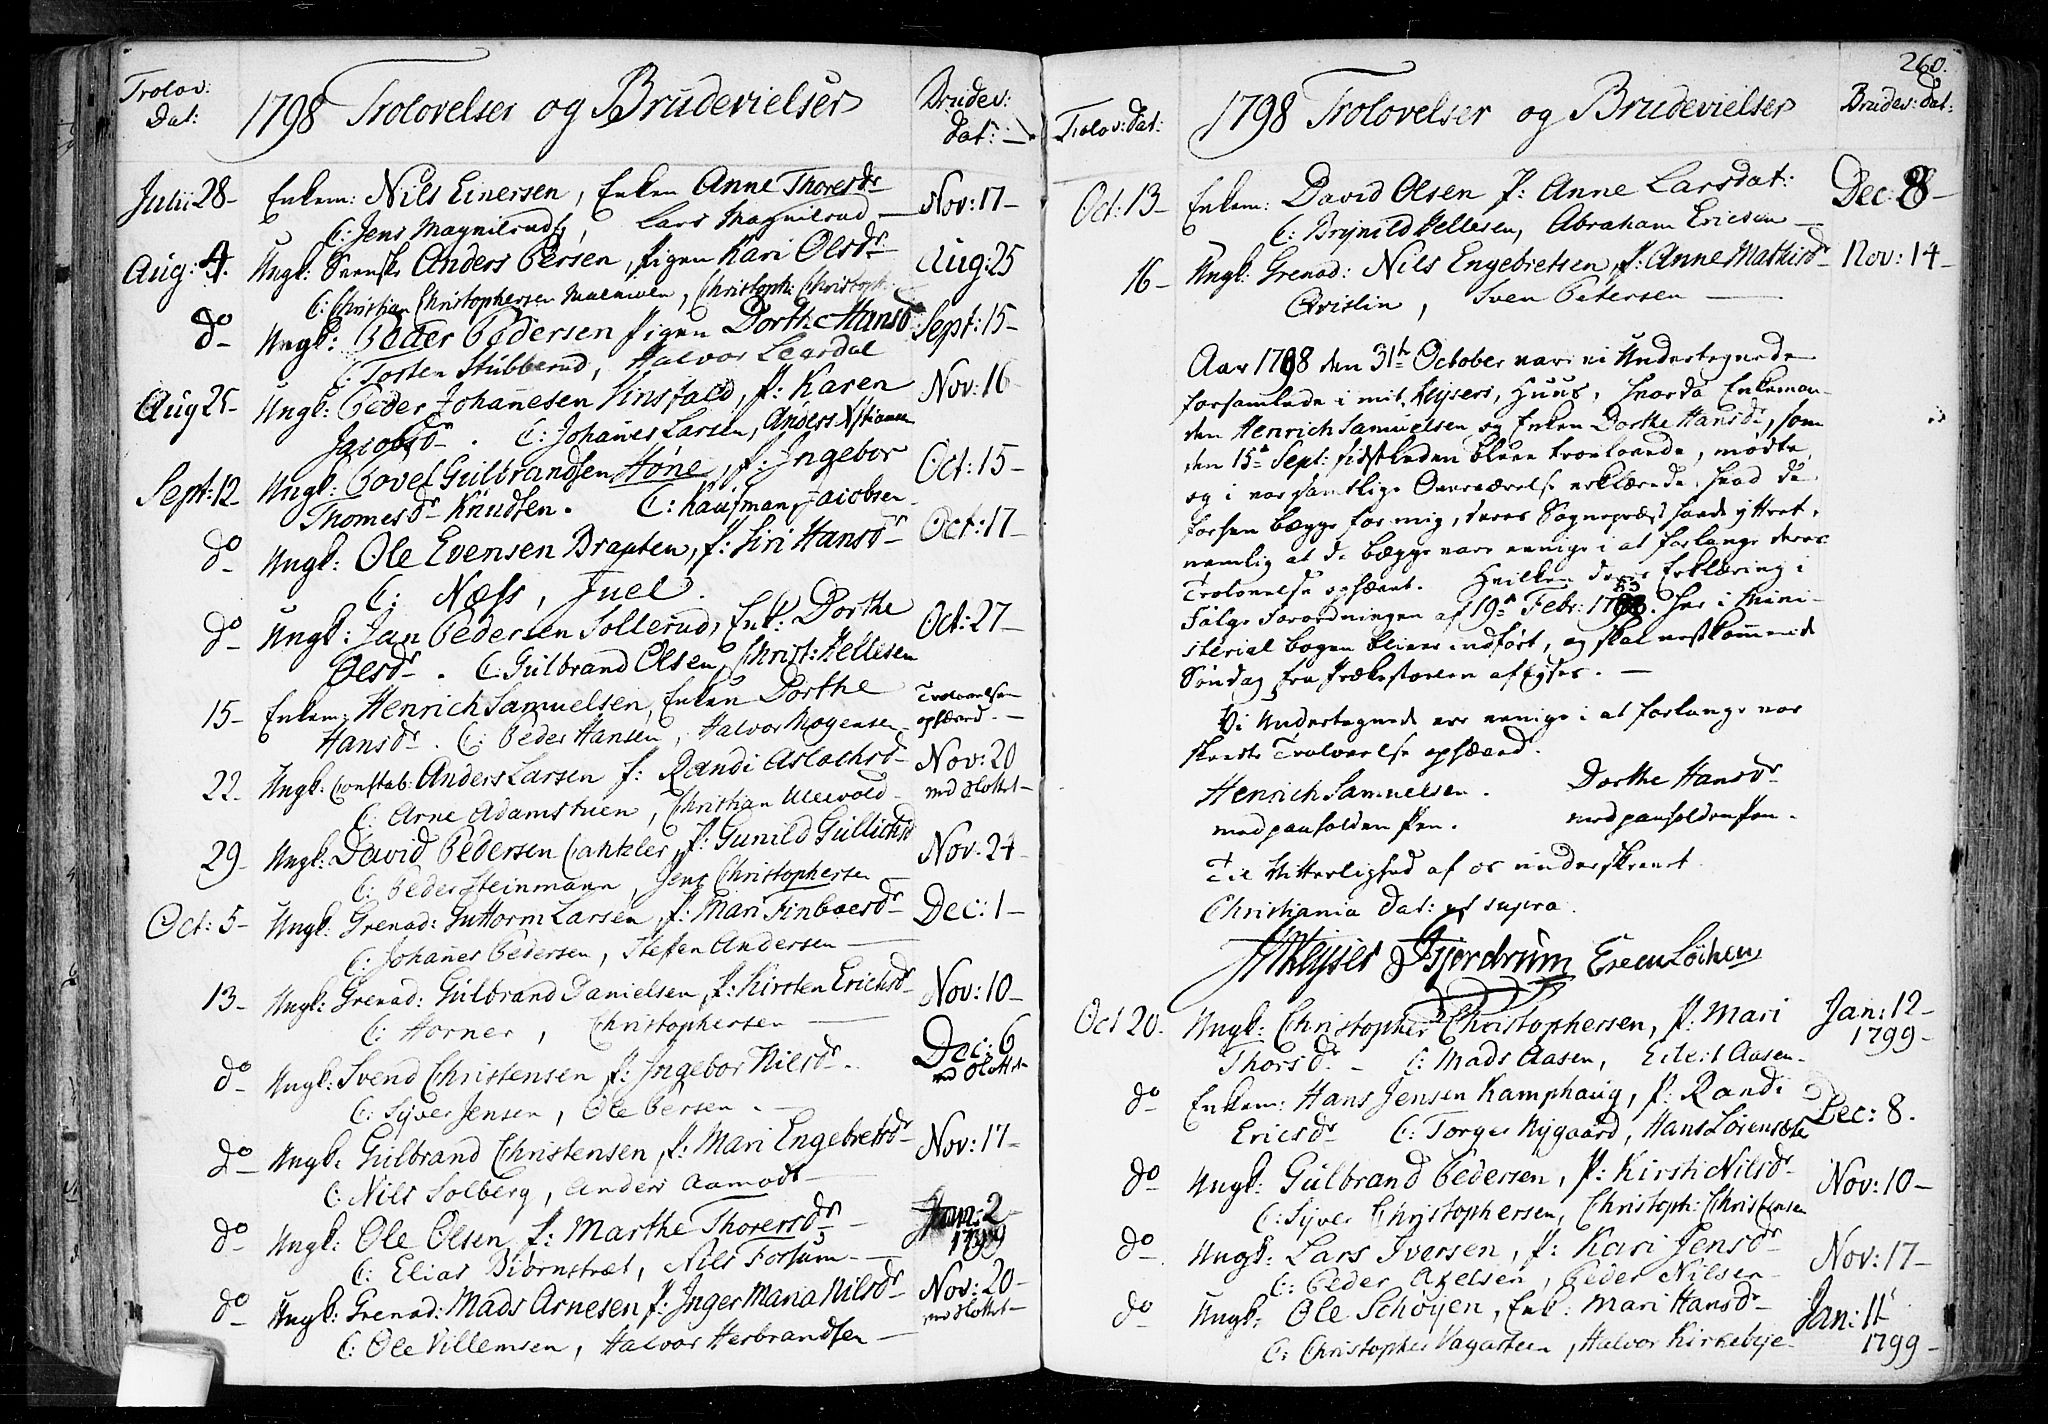 Trolov:
Dat:
1798 Trolovelser og Brudevielser
Brudev:
dat:
Julii 28 - Enkem: Nils Einersen, Enken Anne Thoresdr Nov: 17 -
C: Jens Magnilrud, Lars Magnilrud -
Aug: 4. Ungk: Svensk Anders Persen, Pigen Kari Olsdr Aug: 25
C: Christian Christophersen, Christoph: Christoph
do Ungk: Peder Pedersen Pigen Dorthe Hansd Sept: 15 -
C: Torsten Stubberud, Halvor Leerdal
Aug 25 - Ungk: Peder Johannesen Sinsfald, P: Karen Nov: 16 -
Jacobsdr. C: Johannes Larsen, Anders
Sept: 12 Ungk: Povel Gulbrandsen Høne, P: Ingebor Oct: 15 -
Thomesdr Knudsen. C: Kaufman, Jacobsen
do Ungk: Ole Evensen Braaten, P: Siri Hansdr Oct: 17 -
C: Næss, Juel.
do Ungk: Jan Pedersen Sollerud, Enk: Dorthe Oct: 27 -
Olsdr. C: Gulbrand Olsen, Christ: Pellesen
15 - Enkem: Henrich Samuelsen, Enken Dorthe Trolovelsen
Hansdr. C: Peder Hansen, Halvor Mogensen ophævd. -
22 - Ungk: Constab: Anders Larsen P: Randi Aslachsd Nov: 20
C: Arne Adamstuen, Christian Ulevold - ved Slottet -
29 - Ungk: David Pedersen Cantzler, P: Gunild Gullichsd Nov: 24 -
C: Peder Steinmann, Jens Christophersen
Oct: 5 - Ungk: Grenad: Guttorm Larsen, P: Mari Finboesdr Dec: 1 -
C: Johannes Pedersen, Steffen Andersen -
13 - Ungk: Grenad: Gulbrand Danielsen, P: Kirsten Erichsd Nov: 10 -
C: Horner, Christophersen -
do Ungk: Svend Christensen P: Ingebor Nilsdr. Dec: 6
C: Syver Jensen, Ole Persen. - ved Slottet
do Ungk: Gulbrand Christensen, P: Mari Engebretsdr Nov: 17 -
C: Nils Solberg, Anders Aamodt -
do Ungk: Ole Olsen P: Marthe Thoresdr - Jan: 2
C: Elias Biørnstret, Nils Fossum - 1799
do Ungk: Grenad: Mads Arnesen P: Inger Maria Nilsdr Nov: 20 -
C: Ole Villemsen, Halvor Herbrandsen - ved Slottet -
260.
Trolov: dat: 1798 Trolovelser og Brudevielser Brudev: dat:
Oct: 13 - Enkem: David Olsen P: Anne Larsdat: Dec: 8 -
C: Brynild Pellesen, Abraham Ericsen -
16 - Ungk: Grenad: Nils Engebretsen, P: Anne Mathisdr Nov: 14 -
Qvislin, Sven Petersen -
Aar 1798 den 31te October vare vi Undertegnede
forsamlede i mit, Keysers, Huus, hvorda Enkeman
den Henrich Samuelsen og Enken Dorthe Hansdr, som
den 15de Sept: sidstleden bleve troelovede, mødte,
og i vor samtlige Overværelse erklærede, hvad de
forhen begge for mig, deres Sognepræst havde yttret,
nemlig at de begge vare eenige i at forlange deres
Trolovelse ophævet. Hvilken deres Erklæring i
Følge Forordningen af 19de Febr: 1783. her i Mini-
sterial bogen bliver indført, og skal nestkommende
Søndag fra Prækestoelen aflyses. -
Vi Undertegnede ere eenige i at forlange vor
skeede Trolovelse ophævd.
Henrich Samuelsen. Dorthe Hansdr
med paaholden Pen. med paaholden Pen.
Til Vitterlighed af os underskrevet
Christiania dat: ut supra.
Keyser Gjerdrum Even Løchen
Oct 20. Ungk: Christopher Christophersen, P: Mari Jan: 12 -
Thorsdr. - C: Mads Aasen, Eilert Aasen - 1799 -
do Enkem: Hans Jensen Kamphaug, P: Randi Dec: 8.
Ericsdr C: Torger Nygaard, Hans Lørensæter
do Ungk: Gulbrand Pedersen, P: Kirsti Nilsdr Nov: 10 -
C: Syver Christophersen, Christoph: Christensen
do Ungk: Lars Iversen, P: Kari Jensdr Nov: 17 -
C: Peder Axelsen, Peder Nilsen -
do Ungk: Ole Schøyen, Enk: Mari Hansdr - Jan: 11
C: Christopher Vagasteen, Halvor Kirkebye - 1799 -